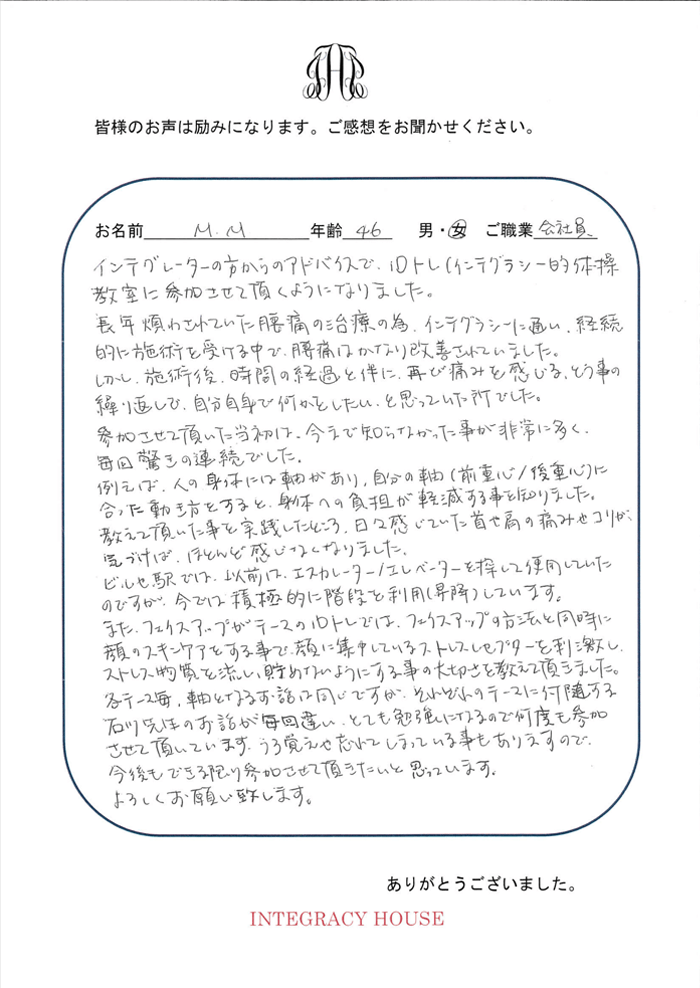 皆様のお声は励みになります。ご感想をお聞かせください。
お名前 M.M 年齢 46 男・女 ご職業 会社員
インテグレーターの方からのアドバイスで、iDトレ(インテグラシー的体操
教室に参加させて頂くようになりました。
長年煩わされていた腰痛の治療の為、インテグラシーに通い、経続
的に施術を受ける中で、腰痛はかなり改善されていました。
しかし、施術後、時間の経過と伴に、再び痛みを感じる、そう事の
繰り返しで、自分自身で何かをしたい、と思っていた所でした。
参加させて頂いた当初は、今まで知らなかった事が非常に多く、
毎回驚きの連続でした。
例えば、人の身体には軸があり、自分の軸(前重心/後重心)に
合った動き方をすると、身体への負担が軽減する事を知りました。
教えて頂いた事を実践したところ、日々感じていた首や肩の痛みやコリが、
気づけば、ほとんど感じなくなりました。
ビルや駅では、以前は、エスカレーター/エレベーターを探して使用していた
のですが、今では積極的に階段を利用(昇降)しています。
また、フェイスアップがテーマのiDトレでは、フェイスアップの方法と同時に
顔のスキンケアをする事で、顔に集中しているストレスレセプターを刺激し、
ストレス物質を流し、貯めないようにする事の大切さを教えて頂きました。
各テーマ毎、軸となるお話は同じですが、それぞれのテーマに付随する
石川先生のお話が毎回違い、とても勉強になるので何度も参加
させて頂いています。うろ覚えや忘れてしまっている事もありますので、
今後もできる限り参加させて頂きたいと思っています。
よろしくお願い致します。
ありがとうございました。
INTEGRACY HOUSE